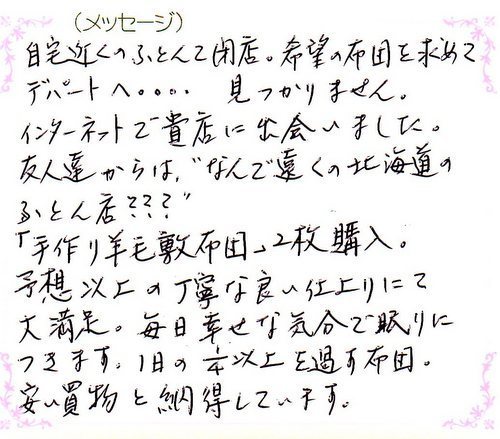 （メッセージ）
自宅近くのふとんて閉店。希望の布団を求めて
デパートへ。。。。 見つかりません。
インターネットで貴店に出会いました。
友人達からは、"なんで遠くの北海道の
ふとん店???"
「手作り羊毛敷布団」2枚購入。
予想以上の丁寧な良い仕上りにて
大満足。毎日幸せな気分で眠りに
つきます。1日の1/4以上を過す布団。
安い買物と納得しています。